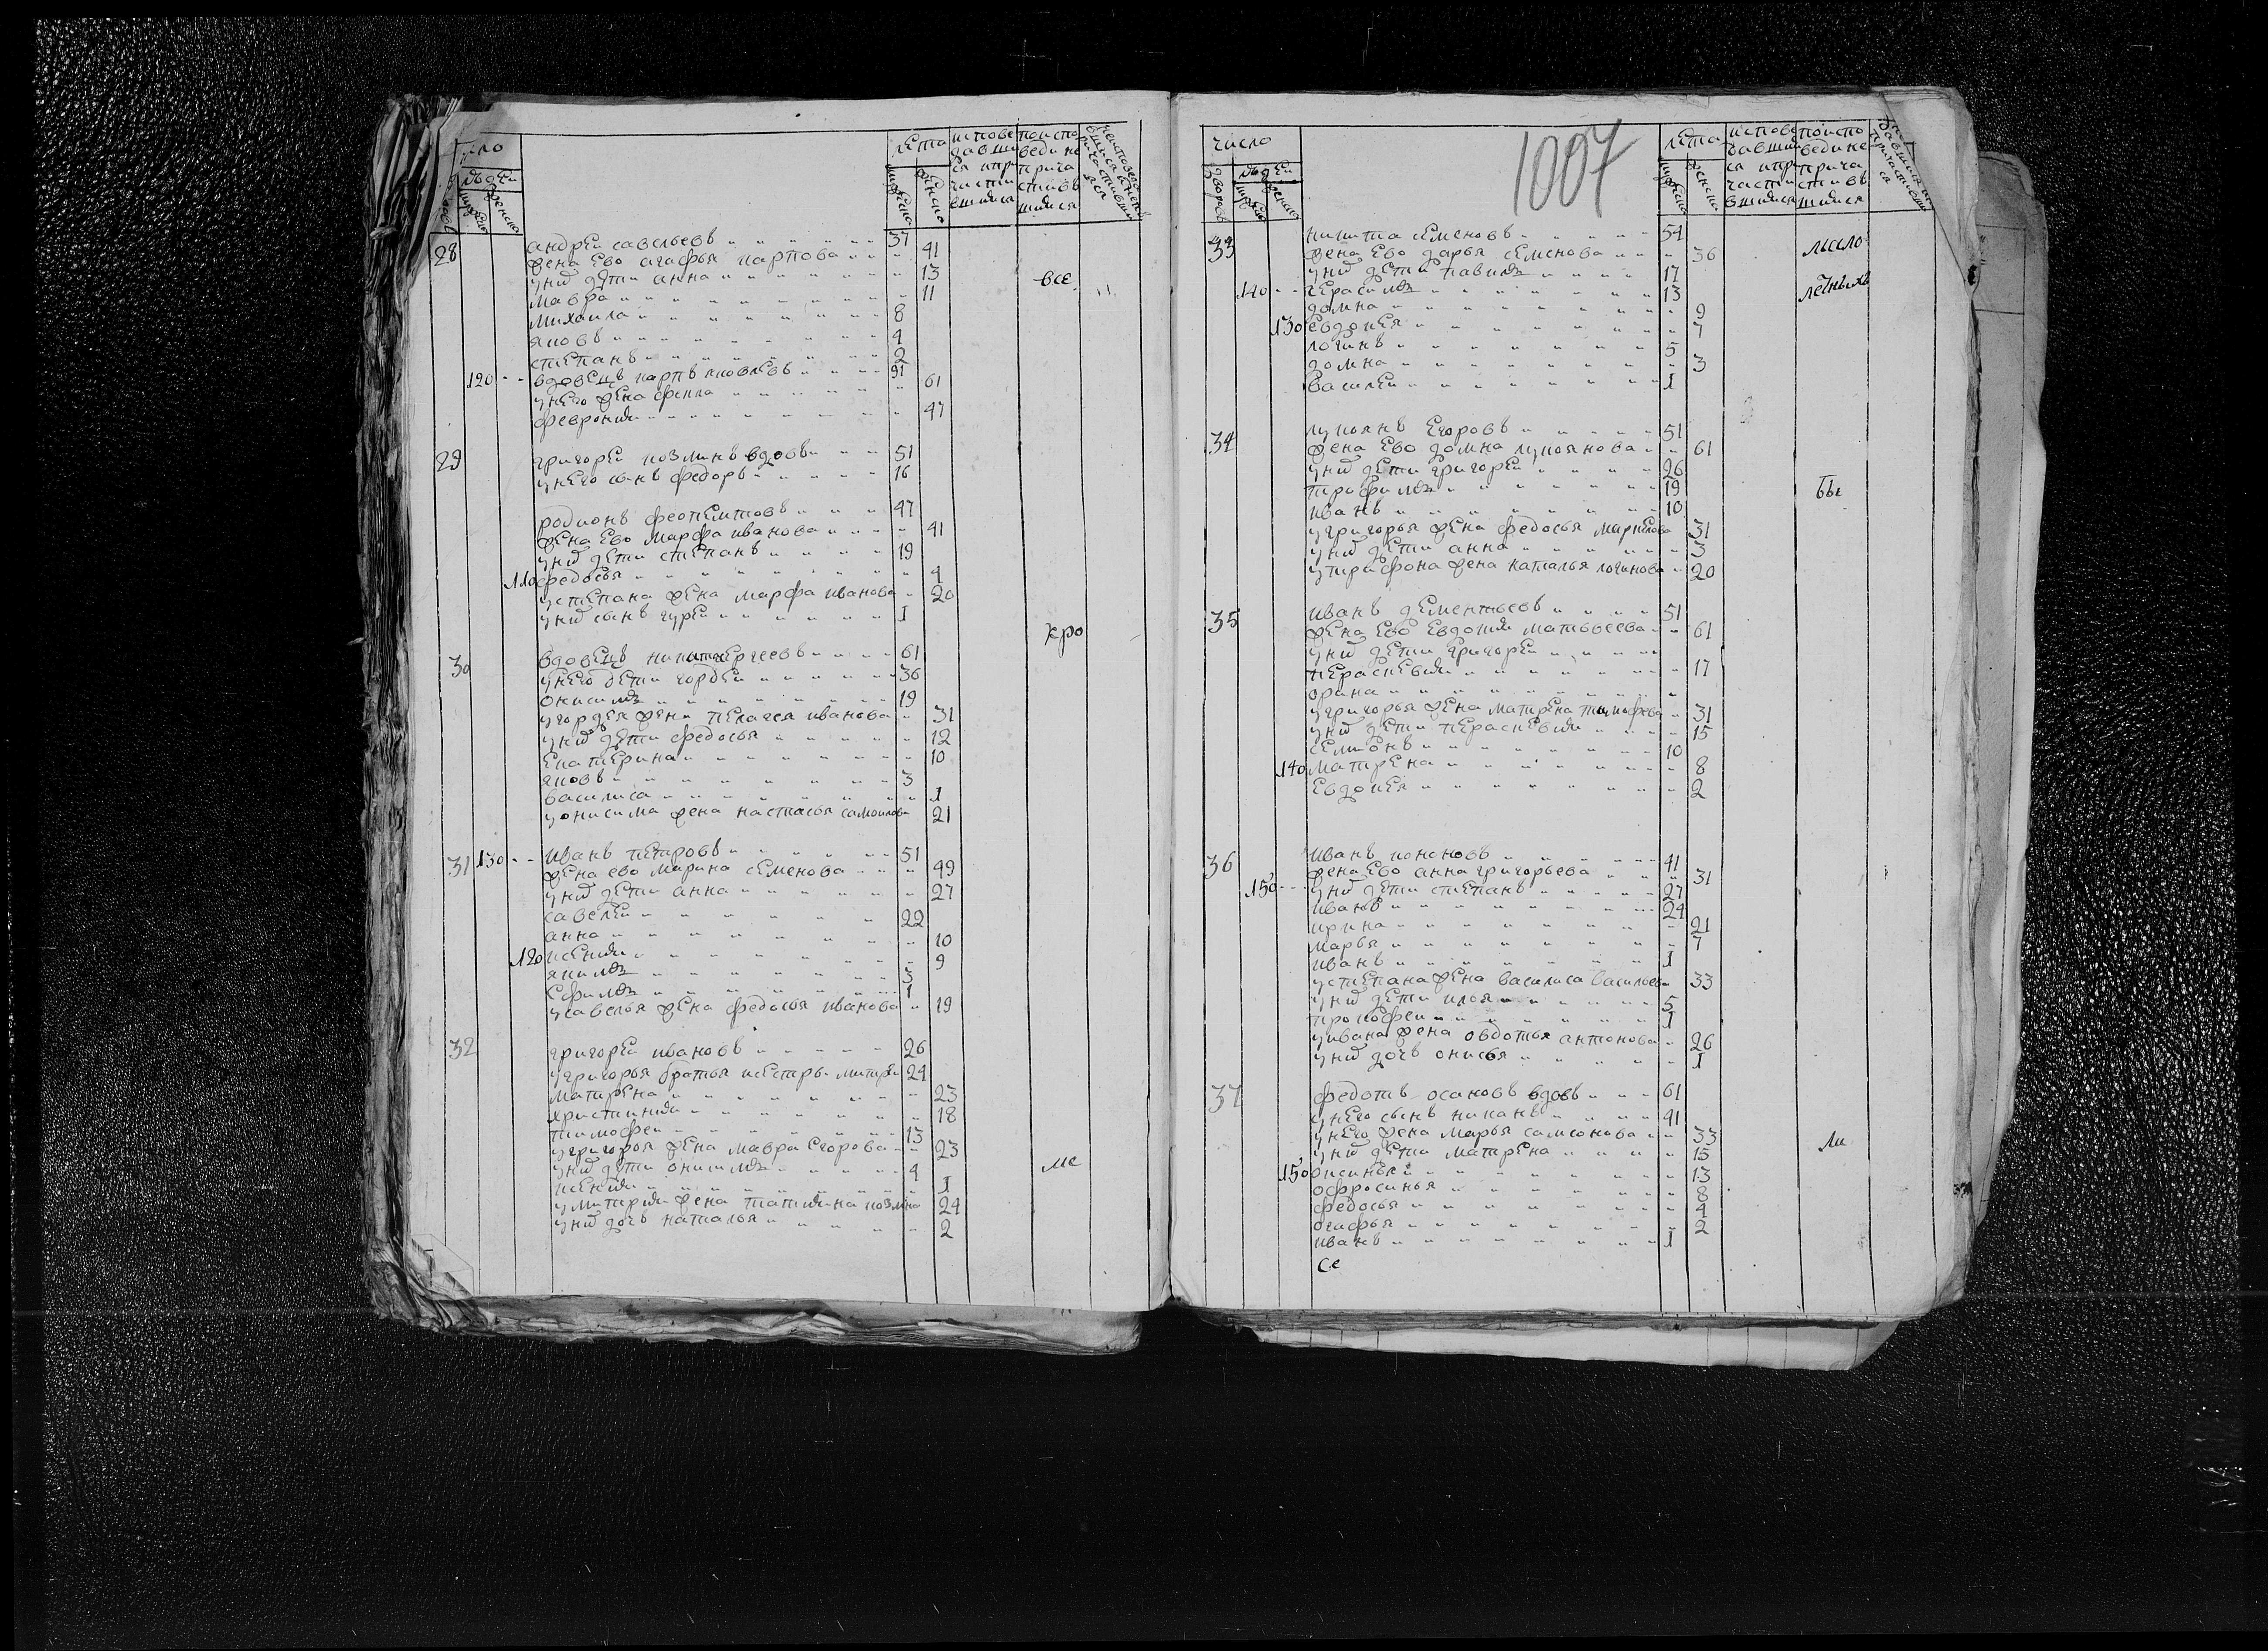 число
людей
лета
исповедавшися и причастившися
по исповеди не причастившися
28 андрей савельевъ 37
жена ево агафья карпова 41
у них дети анна 13
все
мавра 11
михаила 8
яковъ 4
степанъ 2
120 вдовецъ карпъ яковлевъ 91
у него жена фекла 61
феврония 47
29 григорей козминъ вдовъ 51
у него сынъ федоръ 16
родионъ феоктистовъ 47
жена ево марфа иванова 41
у них дети степанъ 19
110 федосья 4
у степана жена марфа иванова 20
у них сынъ гурей 1
кро
30 вдовецъ никита сергеевъ 61
у него дети гордей 36
онисимъ 19
у гордея жена пелагея иванова 31
у них дети федосья 12
екатерина 10
яковъ 3
василиса 1
у онисима жена настасья самоилова 21
31 130 иванъ петровъ 51
жена ево марина семенова 49
у них дети анна 27
савелей 22
анна 10
120 ксения 9
якимъ 3
ефимъ 1
у савелья жена федосья иванова 19
32 григорей ивановъ 26
у григорья братья и сестры митрей 24
матрена 23
христиния 18
тимофей 13
у григорья жена мавра егорова 23
у них дети онисимъ 4
ме
ксения 1
у митрия жена татияна козмина 24
у них дочь наталья 2
1007
число
дворовъ
людей
лета
исповедавшися и причастившися
по исповеди не причастившися
33 никита семеновъ 54
жена ево дарья семенова 36
мало
у них дети павилъ 17
140 герасимъ 13
летныхъ
домна 9
130 евдокея 7
логинъ 5
домна 3
василей 1
34 лукоянъ егоровъ 51
жена ево домна лукоянова 61
у них дети григорей 26
трифимъ 19
бы
иванъ 10
у григорья жена федосья маркелова 31
у них дети анна 3
у трифона жена наталья логинова 20
35 иванъ дементьевъ 51
жена ево евдокия матвеева 61
у них дети григорей
пераскевия 17
орина
у григорья жена матрена тимофева 31
у них дети пераскевия 15
семионъ 10
140 матрена 8
евдокея 2
36 иванъ кононовъ 41
жена ево анна григорьева 31
150 у них дети степанъ 27
иванъ 24
ирина 21
марья 7
иванъ 1
у степана жена василиса васильева 33
у них дети илья 5
прокофей 1
у ивана жена овдотья антонова 26
у них дочь онисья 1
37 федотъ осиповъ вдовъ 61
у него сынъ никонъ 41
у него жена марья самсонова 33
ли
у них дети матрена 15
150 оксинья 13
офросинья 8
федосья 4
огафья 2
иванъ 1
се